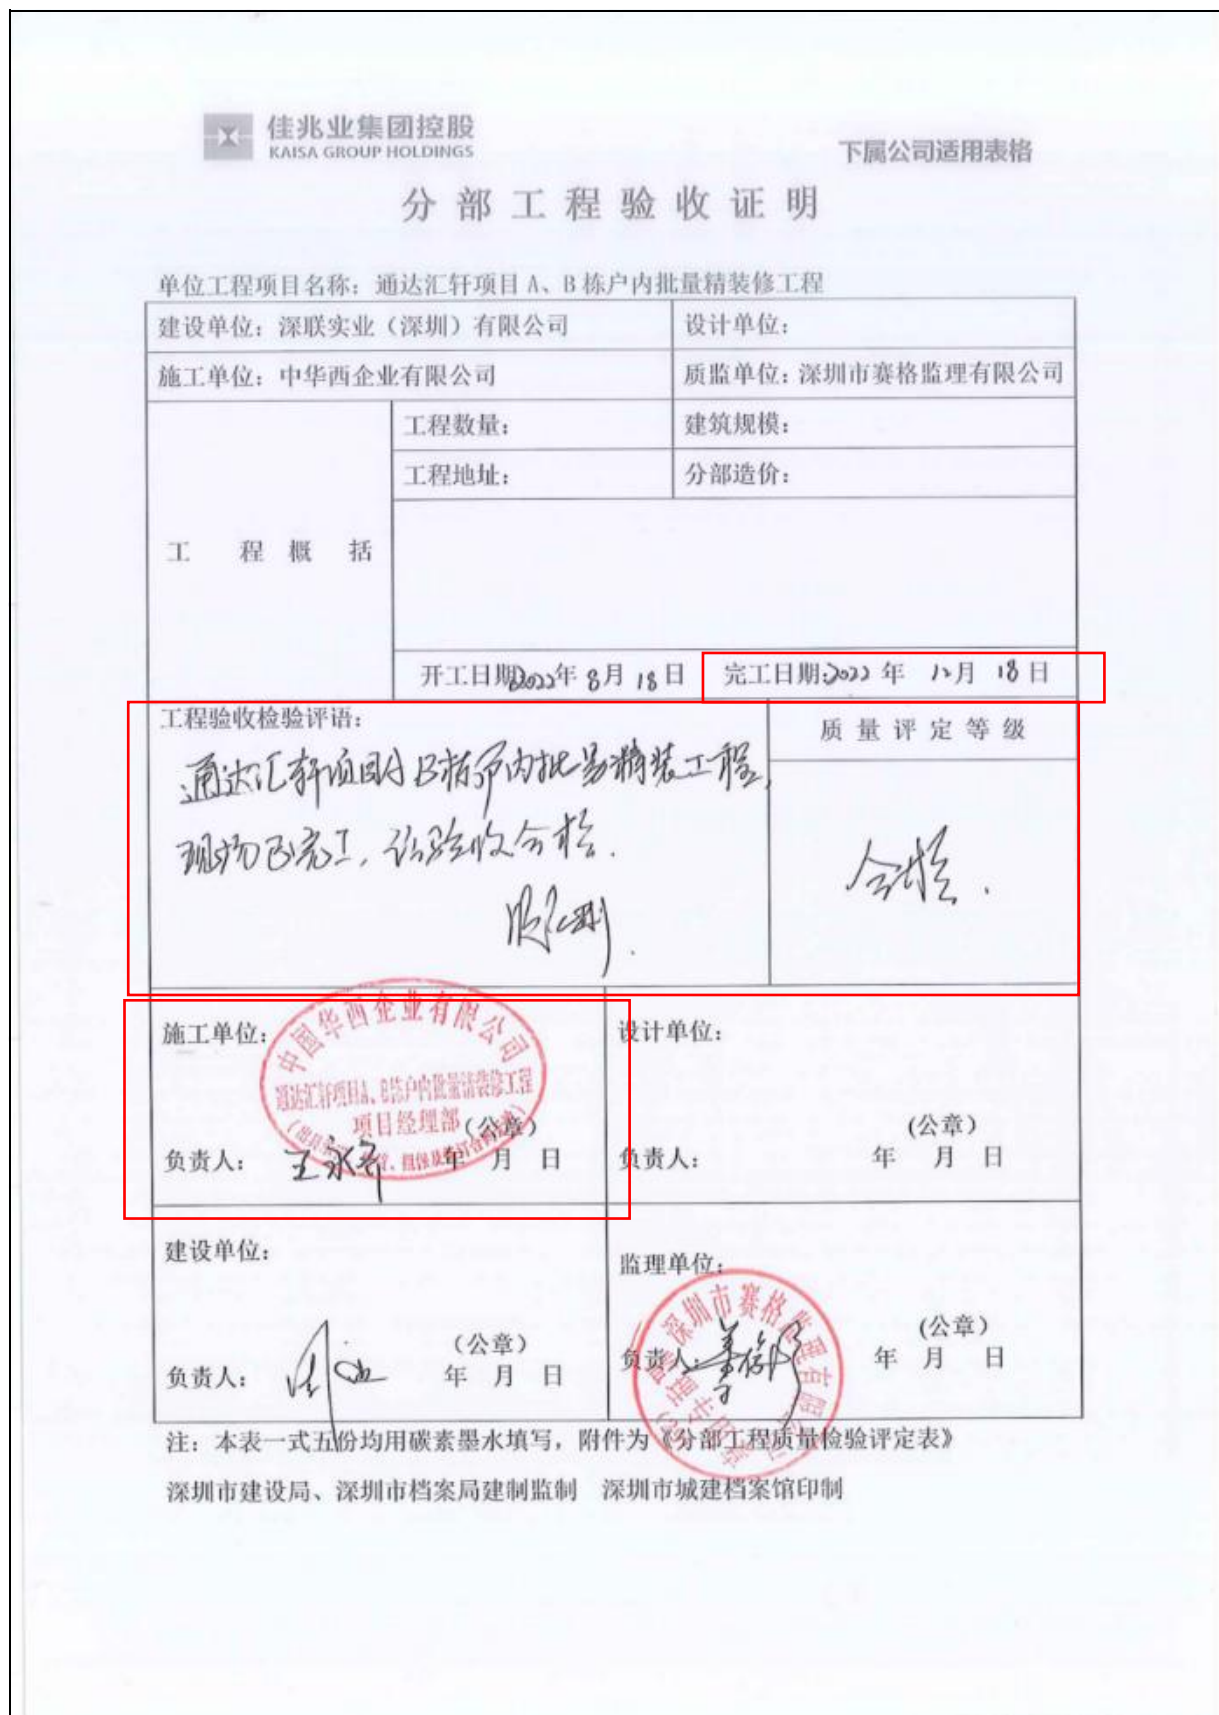 佳兆业集团控股
KAISA GROUP HOLDINGS
下属公司适用表格
分部工程验收证明
单位工程项目名称：通达汇轩项目 A、B 栋户内批量精装修工程
建设单位：深联实业（深圳）有限公司
设计单位：
施工单位：中华西企业有限公司
质监单位：深圳市赛格监理有限公司
工程概括
工程数量：
建筑规模：
工程地址：
分部造价：
开工日期2022年 8月 18日
完工日期:2022 年 12月 18日
工程验收检验评语：
质量评定等级
通达汇轩项目A B栋户内批量精装工程，
现场已完工，验收合格.
合格.
施工单位：
中国华西企业有限公司
通达汇轩项目A、B栋户内批量精装修工程
项目经理部
（公章）
负责人：王永齐
年 月 日
设计单位：
(公章)
负责人：
年 月 日
建设单位：
（公章）
负责人：
年 月 日
监理单位：
深圳市赛格监理有限公司
(公章)
负责人：
年 月 日
注：本表一式五份均用碳素墨水填写，附件为《分部工程质量检验评定表》
深圳市建设局、深圳市档案局建制监制 深圳市城建档案馆印制